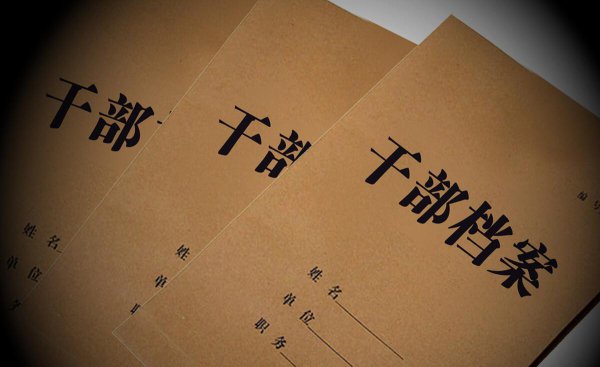 干部
姓名
单位
职务
干部
姓
单
干部档案
编号
姓名
单位
职务